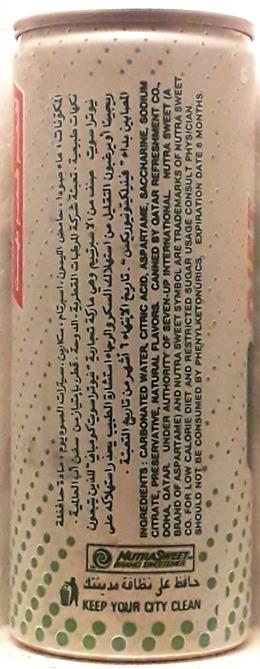 المكونات : ماء صودا ، حامض الليمون ، اسبرتام ، سكارين ، سترات الصوديوم ، مادة حافظة
نكهات طبيعية . تعبئة شركة المرطبات القطرية ، الدوحة ، قطر بامتياز من سفن أب العالمية .
نيوتراسويت صنف من الاسبرتيم وهي ماركة تجارية " نيوتراسويت كومباني " للذين يتبعون
ريجيما أو يرغبون التقليل من استهلاك السكر والرجاء استشارة الطبيب بعدم استهلاكه على
المصابين بداء " فينيلكيتونيوريكس " . تاريخ الانتهاء ٦ أشهر من تاريخ التعبئة .
INGREDIENTS : CARBONATED WATER, CITRIC ACID, ASPARTAME, SACCHARINE, SODIUM
CITRATE, PRESERVATIVE, NATURAL FLAVORS. CANNED BY QATAR REFRESHMENT CO.,
DOHA, QATAR. UNDER AUTHORITY OF SEVEN-UP INTERNATIONAL NUTRA SWEET (A
BRAND OF ASPARTAME) AND NUTRA SWEET SYMBOL ARE TRADEMARK OF NUTRA SWEET
CO. FOR LOW CALORIE DIET AND RESTRICTED SUGAR USAGE CONSULT PHYSICIAN.
SHOULD NOT BE CONSUMED BY PHENYLKETONURICS. EXPIRATION DATE 6 MONTHS.
NUTRASWEET
BRAND SWEETENER
حافظ على نظافة مدينتك
KEEP YOUR CITY CLEAN